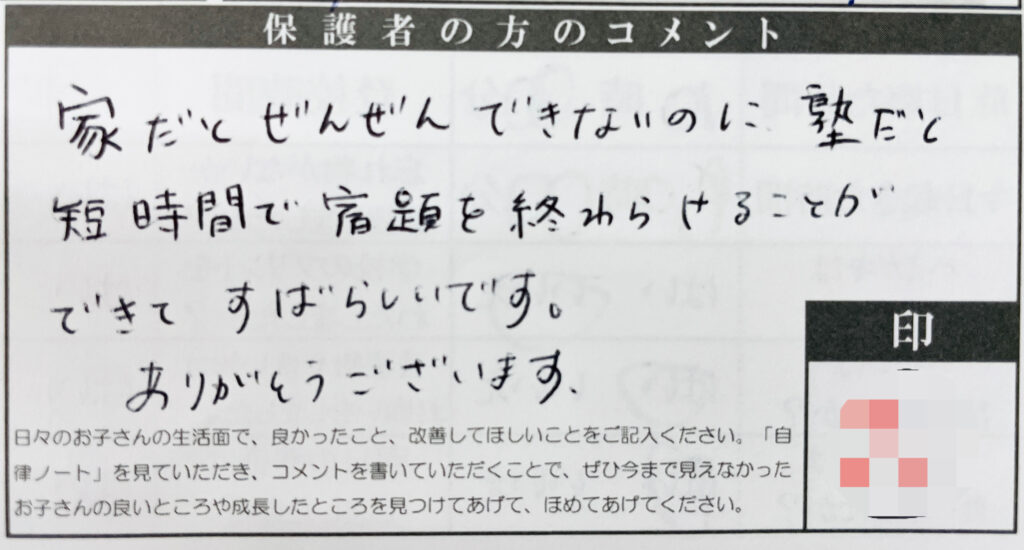 保護者の方のコメント
家だとぜんぜんできないのに塾だと
短時間で宿題を終わらせることが
できてすばらしいです。
ありがとうございます。
印
日々のお子さんの生活面で、良かったこと、改善してほしいことをご記入ください。「自
律ノート」を見ていただき、コメントを書いていただくことで、ぜひ今まで見えなかった
お子さんの良いところや成長したところを見つけてあげて、ほめてあげてください。